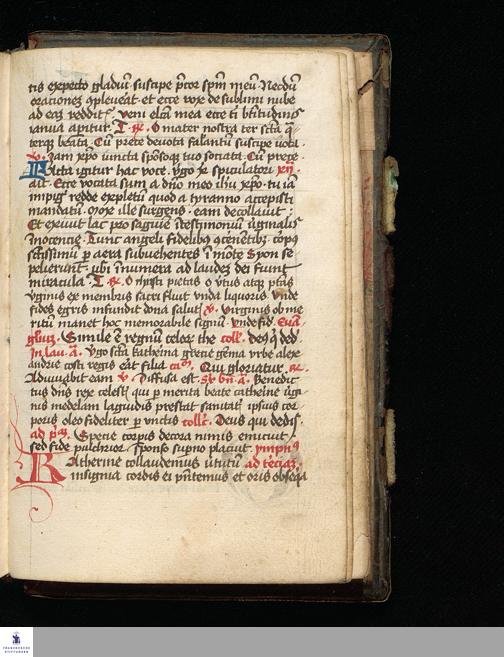 tis expecto gladiu suscipe pctor spm meu Necdu
orationez 9pleverat et ecce vox de sublimi nube
ad eaz reddit veni electa mea ecce ti btitudinis
ianua apitur T R O mater nostra ter scta q
terqz beata Cu piete devota falantiu suscipe vota
v Jam xpo iuncta sposoqz tuo sociata Cu prece
Mlcta igitur hac voce Ugo x spiculatori xij
ait Ecce vocata sum a dno meo ihu xpo tu ia
impig redde expletu quod a tyranno accepisti
mandatu Moxe ille surgens eam decollauit
Et exivit lac pro saguie i testimoniu virginalis
inocencie Tunc angeli fidelibus cernetibz corpus
sctissimu p aera subvehentes i mote Syon se
pelierunt ubi inumera ad laudez dei fiunt
miracula T R O xpisti pietas o vtus atqz ptas
virginis ex membris sacri fluit vnda liquoris Unde
fides egris infundit dona salut v Virginis ob me
ritu manet hoc memorabile signu Unde fid Eua
gliuz Simile e regnu celox the coll Deus q ded
In lau a Ugo scta katherina grecie gema vrbe alex
andrie costi regis erat filia cu Qui gloriatur R
Adiuuabit eam v Diffusa est Sr bn a Benedic
tus dns rex celesti qui p merita beate catherine virgi
nis medelam laguidis prestat sanitate ipsius cor
poris oleo fideliter p vnctis collc Deus qui dedis
ad pa Specie corpis decora nimis emicuit
sed fide pulchrior sponso supno placuit ympnus
Katherine collaudemus vtutu ad terciaz
insignia cordis ei pntemus et oris obseqa
FRANCKESCHE
STIFTUNGEN